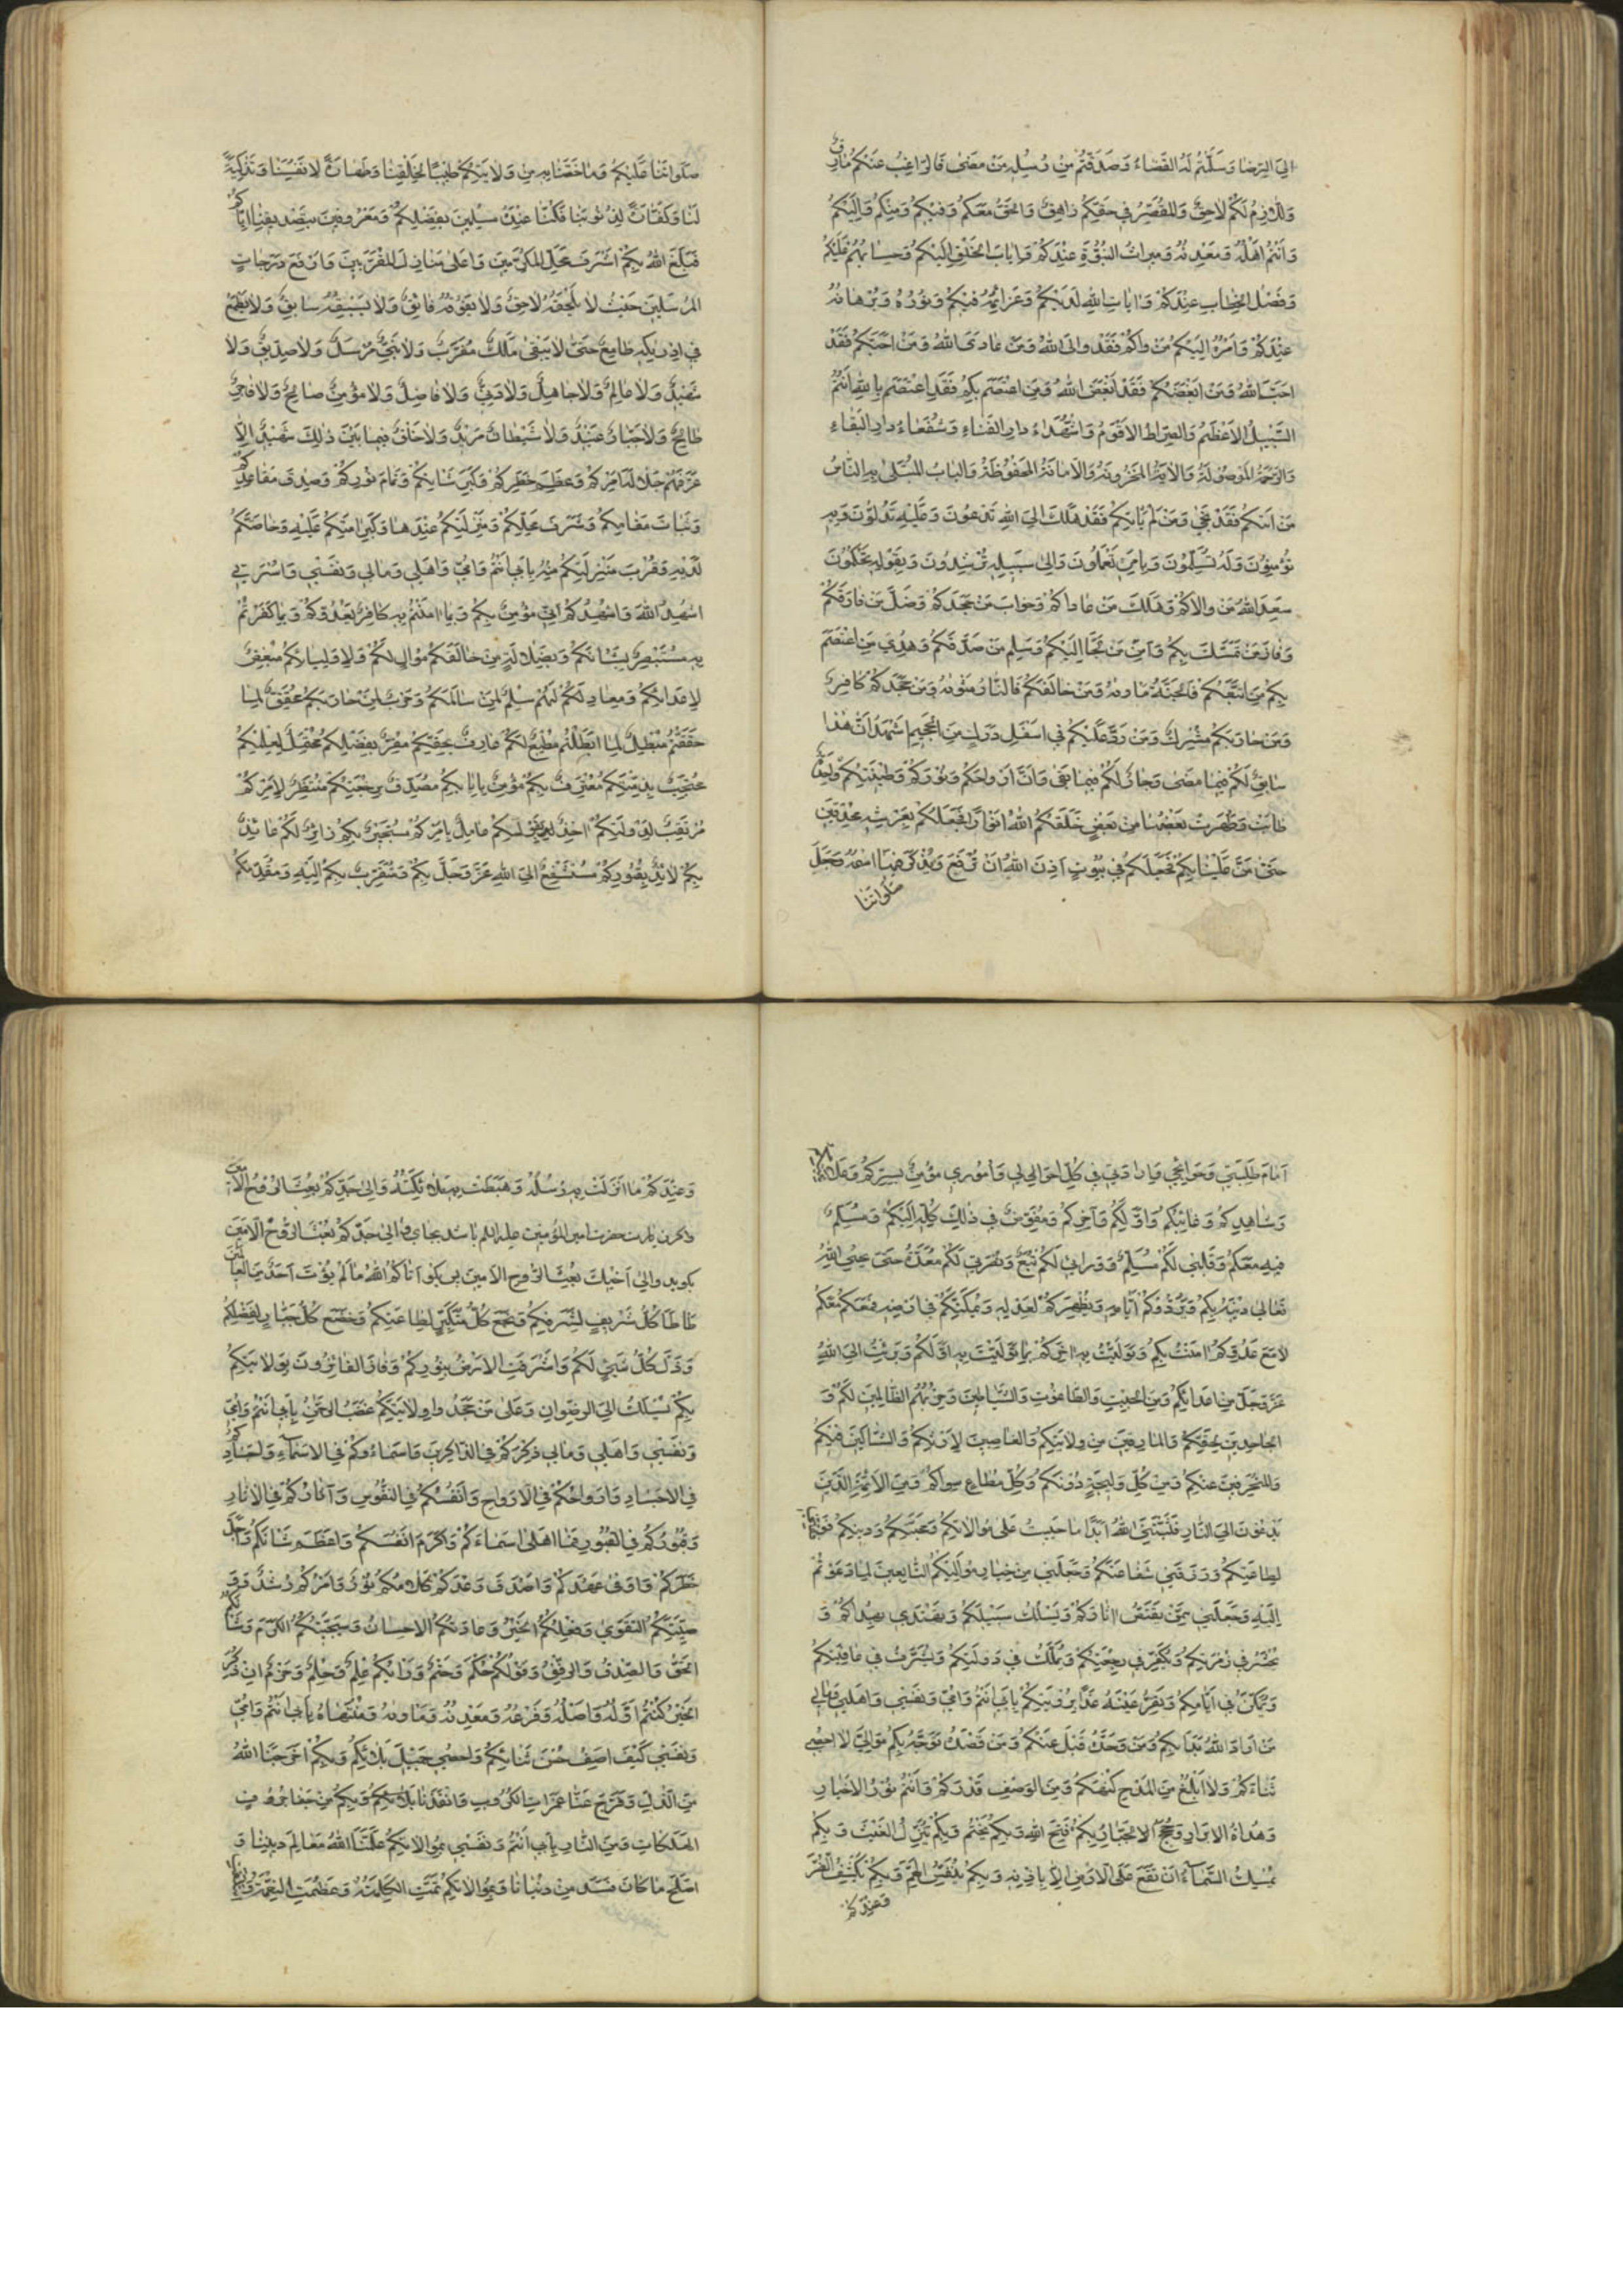 الى الرضا وسلمتم له القضاء وصدقتم من رسله من مضى فالراغب عنكم مارق
واللازم لكم لاحق والمقصر في حقكم زاهق والحق معكم وفيكم ومنكم واليكم
وانتم اهله ومعدنه وميراث النبوة عندكم واياب الخلق اليكم وحسابهم عليكم
وفصل الخطاب عندكم وايات الله لديكم وعزائمه فيكم ونوره وبرهانه
عندكم وامره اليكم من والاكم فقد والى الله ومن عاداكم فقد عادى الله ومن احبكم فقد
احب الله ومن ابغضكم فقد ابغض الله ومن اعتصم بكم فقد اعتصم بالله انتم
السبيل الاعظم والصراط الاقوم وشهداء دار الفناء وشفعاء دار البقاء
والرحمة الموصولة والاية المخزونة والامانة المحفوظة والباب المبتلى به الناس
من اتيكم فقد نجى ومن لم ياتكم فقد هلك الى الله تدعون وعليه تدلون وبه
تؤمنون وله تسلمون وبامره تعملون والى سبيله ترشدون وبقوله تحكمون
سعد الله من والاكم وهلك من عاداكم وخاب من جحدكم وضل من فارقكم
وفاز من تمسك بكم وامن من لجأ اليكم وسلم من صدقكم وهدي من اعتصم
بكم من اتبعكم فالجنة ماويه ومن خالفكم فالنار مثويه ومن جحدكم كافر
ومن حاربكم مشرك ومن رد عليكم في اسفل درك من الجحيم اشهد ان هذا
سابق لكم فيما مضى وجار لكم فيما بقى وان ارواحكم ونوركم وطينتكم واحدة
طابت وطهرت بعضها من بعض خلقكم الله انوارا فجعلكم بعرشه محدقين
حتى من علينا بكم فجعلكم في بيوت اذن الله ان ترفع ويذكر فيها اسمه وجعل
صلواتنا
صلواتنا عليكم وما خصنا به من ولايتكم طيبا لخلقنا وطهارة لانفسنا وتزكية
لنا وكفارة لذنوبنا فكنا عنده مسلمين بفضلكم ومعروفين بتصديقنا اياكم
فبلغ الله بكم اشرف محل المكرمين واعلى منازل المقربين وارفع درجات
المرسلين حيث لا يلحقه لاحق ولا يفوقه فائق ولا يسبقه سابق ولا يطمع
في ادراكه طامع حتى لا يبقى ملك مقرب ولا نبي مرسل ولا صديق ولا
شهيد ولا عالم ولا جاهل ولا دني ولا فاضل ولا مؤمن صالح ولا فاجر
طالح ولا جبار عنيد ولا شيطان مريد ولا خلق فيما بين ذلك شهيد الا
عرفهم جلالة امركم وعظم خطركم وكبر شانكم وتمام نوركم وصدق مقاعدكم
وثبات مقامكم وشرف محلكم ومنزلتكم عنده وكرامتكم عليه وخاصتكم
لديه وقرب منزلتكم منه بابي انتم وامي واهلي ومالي ونفسي واسرتي
اشهد الله واشهدكم اني مؤمن بكم وبما امنتم به كافر بعدوكم وبما كفرتم
به مستبصر بشانكم وبضلالة من خالفكم موال لكم ولاوليائكم مبغض
لاعدائكم ومعاد لهم سلم لمن سالمكم وحرب لمن حاربكم محقق لما
حققتم مبطل لما ابطلتم مطيع لكم عارف بحقكم مقر بفضلكم محتمل لعلمكم
محتجب بذمتكم معترف بكم مؤمن بايابكم مصدق برجعتكم منتظر لامركم
مرتقب لدولتكم اخذ بقولكم عامل بامركم مستجير بكم زائر لكم عائذ
بكم لائذ بقبوركم مستشفع الى الله عز وجل بكم ومتقرب بكم اليه ومقدمكم
امام طلبتي وحوائجي وارادتي في كل احوالي وأموري مؤمن بسركم وعلانيتكم
وشاهدكم وغائبكم واولكم وآخركم ومفوض في ذلك كله اليكم ومسلم
فيه معكم وقلبي لكم مسلم ورايي لكم تبع ونصرتي لكم معدة حتى يحيي الله
تعالى دينه بكم ويردكم في ايامه ويظهركم لعدله ويمكنكم في ارضه فمعكم معكم
لا مع عدوكم امنت بكم وتوليت به اخركم بما توليت به اولكم وبرئت الى الله
عز وجل من اعدائكم ومن الجبت والطاغوت والشياطين وحزبهم الظالمين لكم و
الجاحدين لحقكم والمارقين من ولايتكم والغاصبين لارثكم والشاكين فيكم
والمنحرفين عنكم ومن كل وليجة دونكم وكل مطاع سواكم ومن الائمة الذين
يدعون الى النار فثبتني الله ابدا ما حييت على موالاتكم ومحبتكم ودينكم ووفقني
لطاعتكم ورزقني شفاعتكم وجعلني من خيار مواليكم التابعين لما دعوتم
اليه وجعلني ممن يقتص اثاركم ويسلك سبيلكم ويهتدي بهداكم و
يحشر في زمرتكم ويكر في رجعتكم ويملك في دولتكم ويشرف في عافيتكم
ويمكن في ايامكم وتقر عينه غدا برؤيتكم بابي انتم وامي ونفسي واهلي ومالي
من اراد الله بدا بكم ومن وحده قبل عنكم ومن قصده توجه بكم موالي لا احصي
ثناءكم ولا ابلغ من المدح كنهكم ومن الوصف قدركم وانتم نور الاخيار
وهداة الابرار وحجج الجبار بكم فتح الله وبكم يختم وبكم ينزل الغيث وبكم
يمسك السماء ان تقع على الارض الا باذنه وبكم ينفس الهم وبكم يكشف الضر
وعندكم
وعندكم ما انزلت به رسله وهبطت به ملائكته والى جدكم بعث الروح الامين
واكر زيارت حضرت امير المؤمنين عليه السلم باشد بجاي والى جدكم بعث الروح الامين
بكويد والى اخيك بعث الروح الامين پس بكو اتاكم الله ما لم يؤت احدا من العالمين
طاطا كل شريف لشرفكم وبخع كل متكبر لطاعتكم وخضع كل جبار لفضلكم
وذل كل شيء لكم واشرقت الارض بنوركم وفاز الفائزون بولايتكم
بكم يسلك الى الرضوان وعلى من جحد ولايتكم غضب الرحمن بابي انتم وامي
ونفسي واهلي ومالي ذكركم في الذاكرين واسماؤكم في الاسماء واجسادكم
في الاجساد وارواحكم في الارواح وانفسكم في النفوس وآثاركم في الاثار
وقبوركم في القبور فما احلى اسماءكم واكرم انفسكم واعظم شانكم واجل
خطركم واوفى عهدكم واصدق وعدكم كلامكم نور وامركم رشد و
وصيتكم التقوى وفعلكم الخير وعادتكم الاحسان وسجيتكم الكرم وشانكم
الحق والصدق والرفق وقولكم حكم وحتم ورايكم علم وحلم وحزم ان ذكر
الخير كنتم اوله واصله وفرعه ومعدنه وماويه ومنتهاه بابي انتم وامي
ونفسي كيف اصف حسن ثنائكم واحصي جميل بلائكم وبكم اخرجنا الله
من الذل وفرج عنا غمرات الكروب وانقذنا بكم من شفا جرف
الهلكات ومن النار بابي انتم وامي ونفسي بموالاتكم علمنا الله معالم ديننا و
اصلح ما كان فسد من دنيانا وبموالاتكم تمت الكلمة وعظمت النعمة